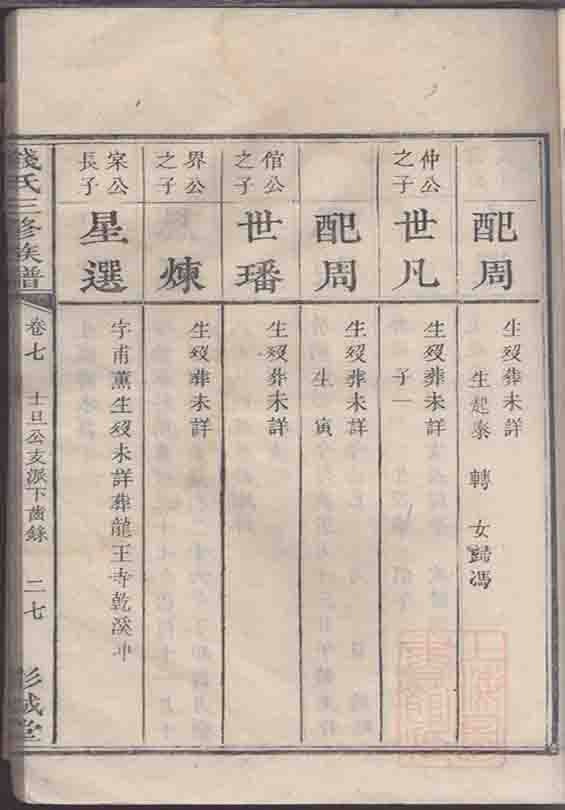 配周
生歿葬未詳
生起泰 轉 女歸馮
仲公之子
世凡
生歿葬未詳
子一
配周
生歿葬未詳
生 寅
倌公之子
世璠
生歿葬未詳
界公之子
煉
生歿葬未詳
寀公長子
星選
字甫薰生歿未詳葬龍王寺乾溪冲
錢氏三修族譜
卷七 士旦公支派下齒錄 二七
彭城堂